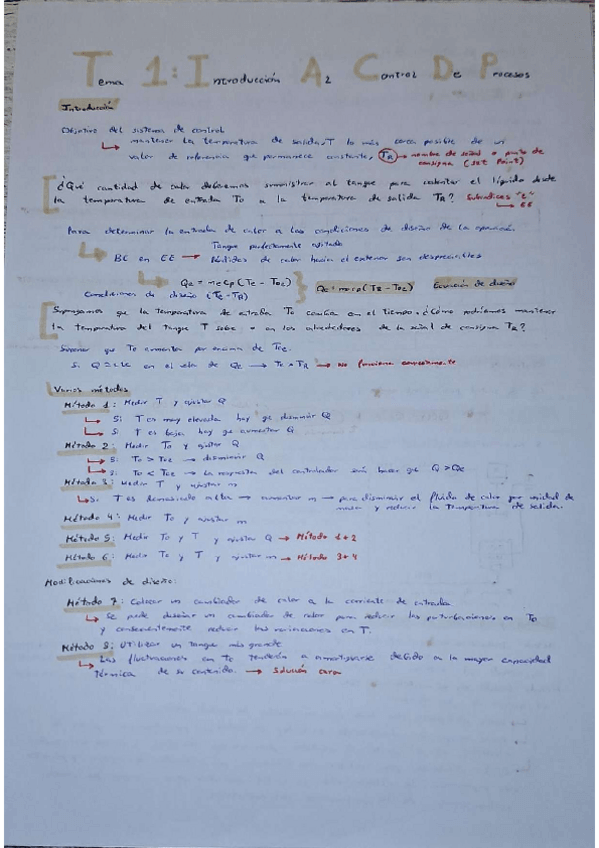 Tema 1: Introducción Al Control De Procesos
Introducción
Objetivo del sistema de control
mantener la temperatura de salida, T lo más cerca posible de un
valor de referencia que permanece constante, TR → nombre de señal o punto de
consigna (set Point)
¿Qué cantidad de calor debemos suministrar al tanque para calentar el líquido desde
la temperatura de entrada To a la temperatura de salida TR? Subíndices "e"
→ EE
Para determinar la entrada de calor a las condiciones de diseño de la operación.
Tanque perfectamente agitado
BE en EE → Pérdidas de calor hacia el exterior son despreciables
Qe = me cp (Te - Toe) Qe = me cp (TR - Toe) Ecuación de diseño
Condiciones de diseño (Te = TR)
Supongamos que la temperatura de entrada To cambia en el tiempo. ¿Cómo podríamos mantener
la temperatura del tanque T sobre o en los alrededores de la señal de consigna TR?
Suponer que To aumenta por encima de Toe.
Si Q = cte en el valor de Qe → → No funciona correctamente
Varios métodos
Método 1: Medir T y ajustar Q
Si T es muy elevada hay qe disminuir Q
Si T es baja hay qe aumentar Q
Método 2: Medir To y ajustar Q
Si To > Toe → disminuir Q
Si To < Toe → La respuesta del controlador será hacer que Q > Qe
Método 3: Medir T y ajustar m
Si T es demasiado alta → aumentar m → para disminuir el fluido de calor por unidad de
masa y reducir la temperatura de salida.
Método 4: Medir To y ajustar m
Método 5: Medir To y T y ajustar Q → Método 1+2
Método 6: Medir To y T y ajustar m → Método 3+4
Modificaciones de diseño:
Método 7: Colocar un cambiador de calor a la corriente de entrada
Se puede diseñar un cambiador de calor para reducir las perturbaciones en To
y consecuentemente reducir las variaciones en T.
Método 8: Utilizar un tanque más grande
Las fluctuaciones en To tenderán a amortiguarse debido a la mayor capacidad
térmica de su contenido. → Solución cara